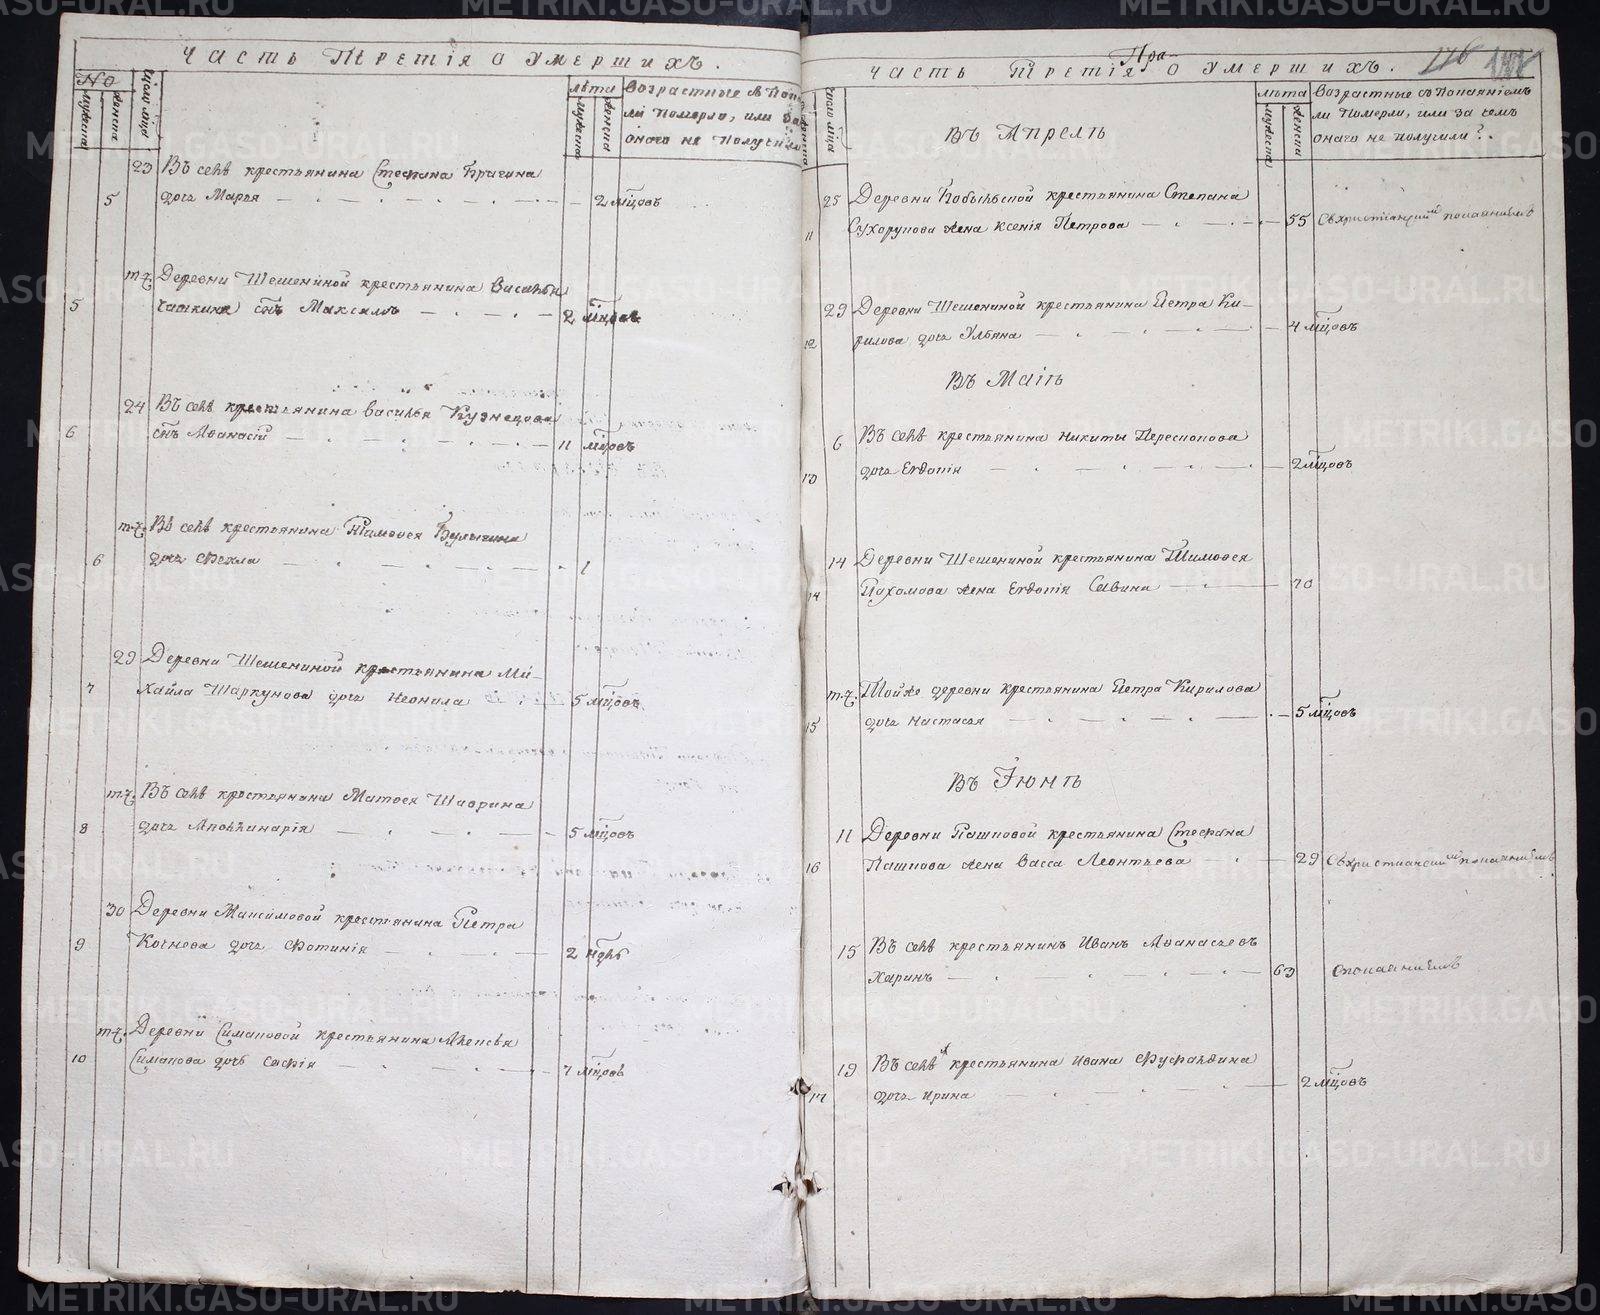 ЧАСТЬ ТРЕТІЯ О УМЕРШИХЪ.
No
мужеска
женска
число мца
лѣта
мужеска
женска
возрастные съ пока
ли померло, или за
онаго не получили
23 Въ селѣ крестьянина Стефана
5 дочь Марья 2 мцовъ
т.ч. Деревни Шешениной крестьянина Василья
5 сынъ Максимъ 2 мцовъ
24 Въ селѣ крестьянина Василья Кузнецова
6 сынъ Аѳанасій 11 мцовъ
т.ч. Въ селѣ крестьянина Тимоѳея Булыгина
6 дочь Ѳекла 1
29 Деревни Шешениной крестьянина Ми-
7 хайла Шаркунова дочь Неонила 5 мцовъ
т.ч. Въ селѣ крестьянина Матѳея Шаврина
8 дочь Аполлинарія 5 мцовъ
30 Деревни Максимовой крестьянина Петра
9 Кочнева дочь Фотинія 2 ндѣ
т.ч. Деревни Симановой крестьянина Алексѣя
10 Симанова дочь Софія 7 мцовъ
Пра
ЧАСТЬ ТРЕТІЯ О УМЕРШИХЪ.
176
женска
число мца
лѣта
мужеска
женска
возрастные съ покаяніемъ
ли померли, или за чемъ
онаго не получили?
Въ Апрелѣ
25 Деревни Кобыльской крестьянина Степана
11 Сухорукова жена Ксенія Петрова 55 Съ христіанскимъ покаяніемъ
29 Деревни Шешениной крестьянина Петра Ки-
12 рилова дочь Ульяна 4 мцовъ
Въ Маіѣ
6 Въ селѣ крестьянина Никиты Пересконова
13 дочь Евдокія 2 мцовъ
14 Деревни Шешениной крестьянина Тимоѳея
14 Пахомова жена Евдокія Савина 70
т.ч. Той же деревни крестьянина Петра Кирилова
15 дочь Настасья 5 мцовъ
Въ Іюнѣ
11 Деревни Пашковой крестьянина Стефана
16 Пашкова жена Васса Леонтьева 29 Съ христианскимъ покаяніемъ
15 Въ селѣ крестьянинъ Иванъ Аѳанасьевъ
Харинъ 63 с покаяниемъ
19 Въ селѣ крестьянина Ивана
17 дочь Ирина 2 мцовъ